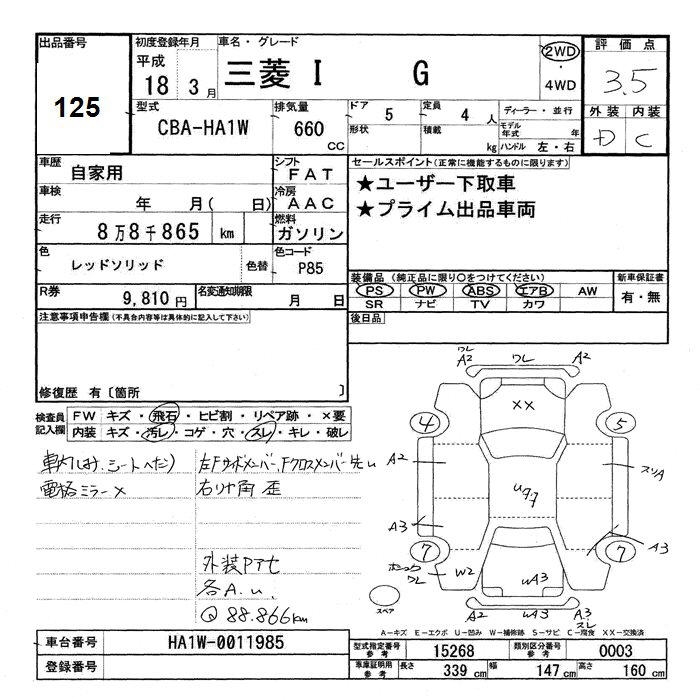 出品番号
125
初度登録年月
平成
18 3 月
車名・グレード
三菱 I G
2WD
・
4WD
評価点
3.5
外装 内装
D C
型式
CBA-HA1W
排気量
660
CC
ドア 5
形状
定員 4 人
積載 kg
ディーラー・並行
モデル年式 年
ハンドル 左・右
車歴
自家用
シフト
FAT
車検
年 月( 日)
冷房
AAC
走行
8万8千865 km
燃料
ガソリン
色
レッドソリッド
色替
色コード
P85
R券
9,810 円
名変通知期限
月 日
セールスポイント(正常に機能するものに限ります)
★ユーザー下取車
★プライム出品車両
装備品 (純正品に限り○をつけてください)
新車保証書
PS PW ABS エアB AW
SR ナビ TV カワ
有・無
後日品
注意事項申告欄(不具合内容等は具体的に記入して下さい)
修復歴 有〔箇所 〕
検査員
記入欄
FW キズ・飛石・ヒビ割・リペア跡・×要
内装 キズ・汚レ・コゲ・穴・スレ・キレ・破レ
電格ミラー×
外装PアU
各A.u.
Q 88.866km
ワレ
A2
ワレ
A2
XX
4
5
A2
スリA
A3
A3
7
7
ワレ
W2
uA3
A2
uA3
A3
スレ
スペア
A-キズ E-エクボ U-凹み W-補修跡 S-サビ C-腐食 XX-交換済
車台番号
HA1W-0011985
登録番号
型式指定番号
参考
15268
類別区分番号
参考
0003
車庫証明用
参考
長さ 339 cm
幅 147 cm
高さ 160 cm